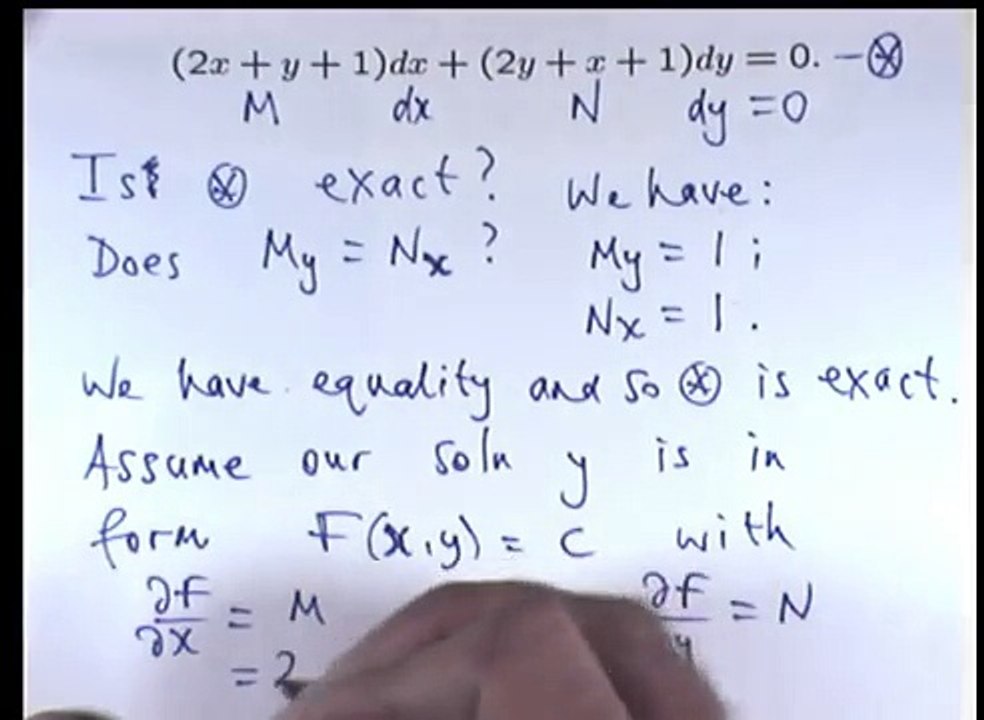 (2x + y + 1)dx + (2y + x + 1)dy = 0. – ⊛
M dx N dy = 0
Is ⊛ exact? We have:
Does My = Nx ? My = 1 ;
Nx = 1 .
We have equality and so ⊛ is exact.
Assume our soln y is in
form F(x,y) = C with
∂F/∂x = M ∂F/∂y = N
= 2